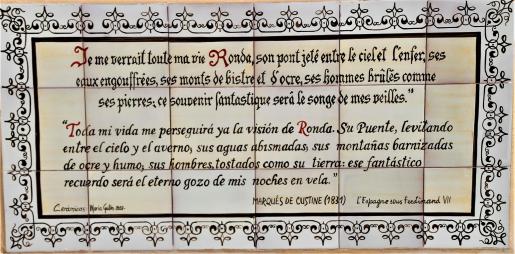 Je me verrait toute ma vie Ronda, son pont jeté entre le ciel et l'enfer, ses
eaux engouffrées, ses monts de bistre et d'ocre, ses hommes brûlés comme
ses pierres; ce souvenir fantastique serà le songe de mes veilles."
"Toda mi vida me perseguirá ya la visión de Ronda. Su Puente, levitando
entre el cielo y el averno, sus aguas abismadas, sus montañas barnizadas
de ocre y humo, sus hombres, tostados como su tierra: ese fantástico
recuerdo será el eterno gozo de mis noches en vela."
MARQUÉS DE CUSTINE (1831) L'Espagne sous Ferdinand VII
Cerámicas María